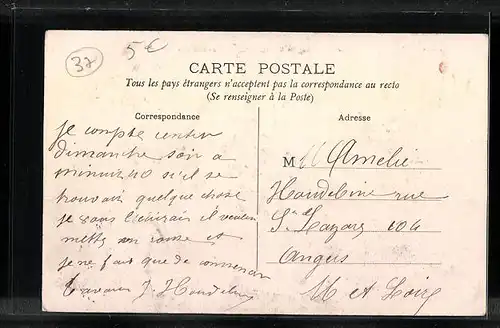 37
5€
CARTE POSTALE
Tous les pays étrangers n'acceptent pas la correspondance au recto
(Se renseigner à la Poste)
Correspondance
Adresse
je compte rentrer
dimanche soir a
minuit 40 s'il se
trouvais quelque chose
je vous l'écrirais il veulent
mettre en route et
je ne fait que de commencer
travaux J. Houdebine
M lle Amelie
Houdebine rue
St Lazare 104
Angers
M et Loire